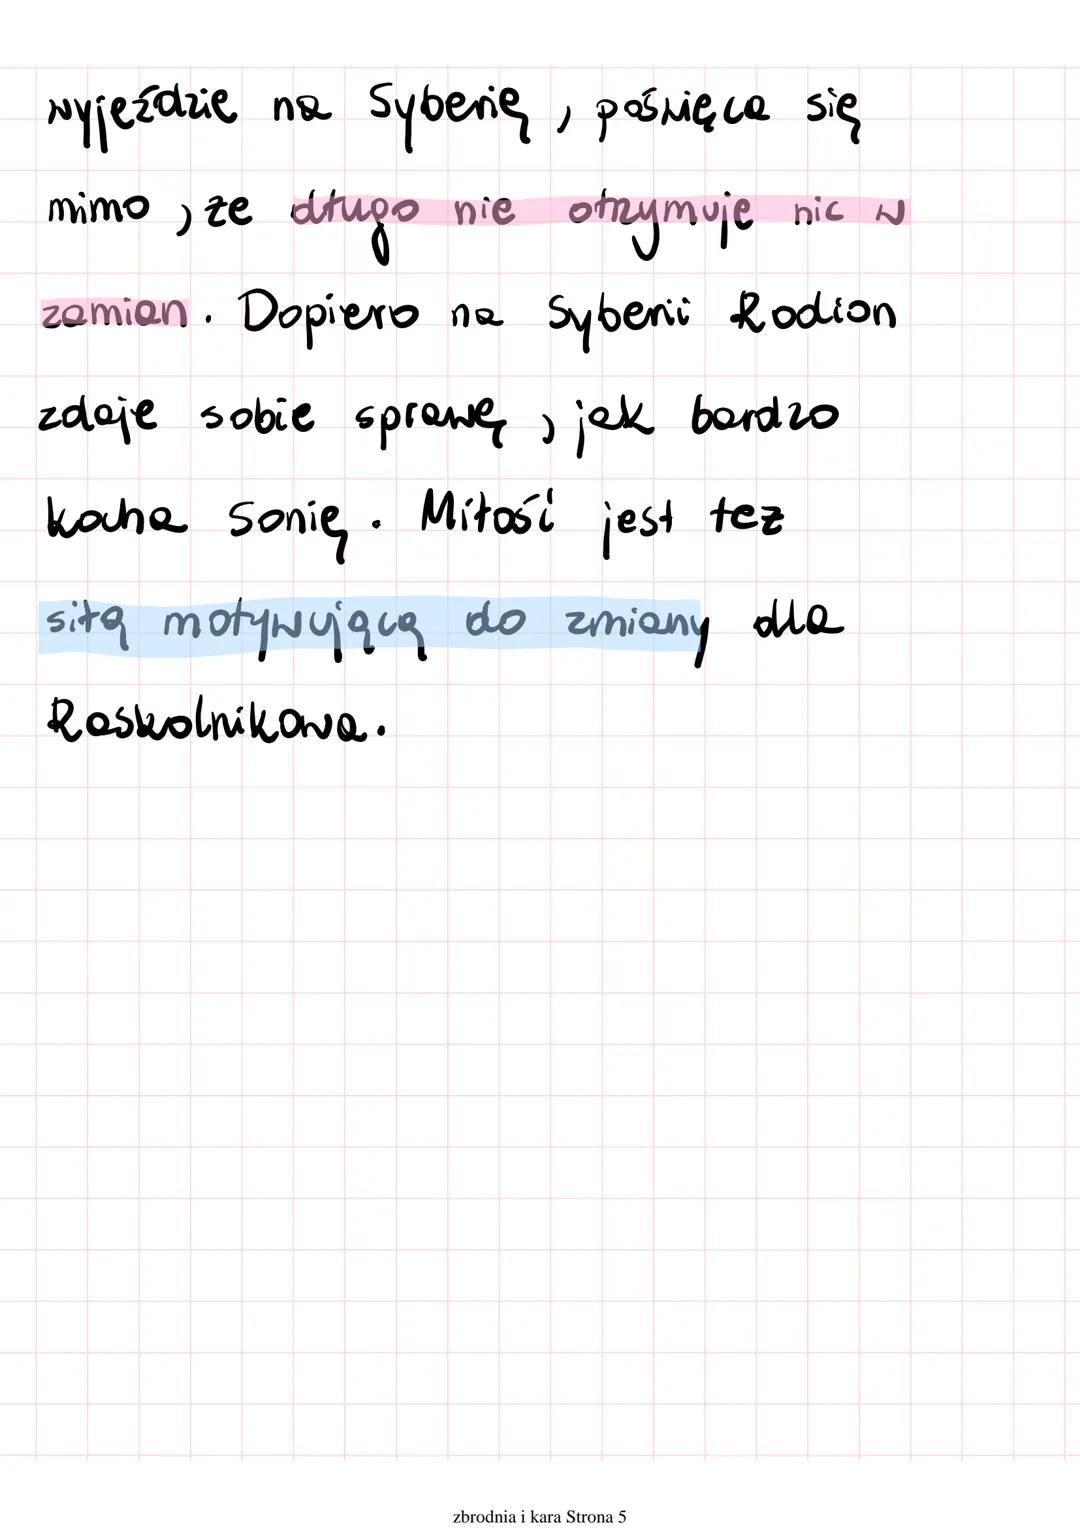 wyjeździe na Syberię, poświęca się
mimo, że długo nie otrzymuje nic w
zamian. Dopiero na Syberii Rodion
zdaje sobie sprawę, jak bardzo
kocha Sonię. Miłość jest też
siłą motywującą do zmiany dla
Raskolnikowa.
zbrodnia i kara Strona 5